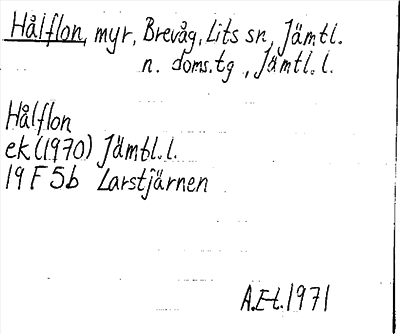 Hålflon, myr, Brevåg, Lits sn, Jämtl.
n. doms.tg, Jämtl. l.
Hålflon
ek (1970) Jämtl. l.
19 F 5b Larstjärnen
A.E-t. 1971